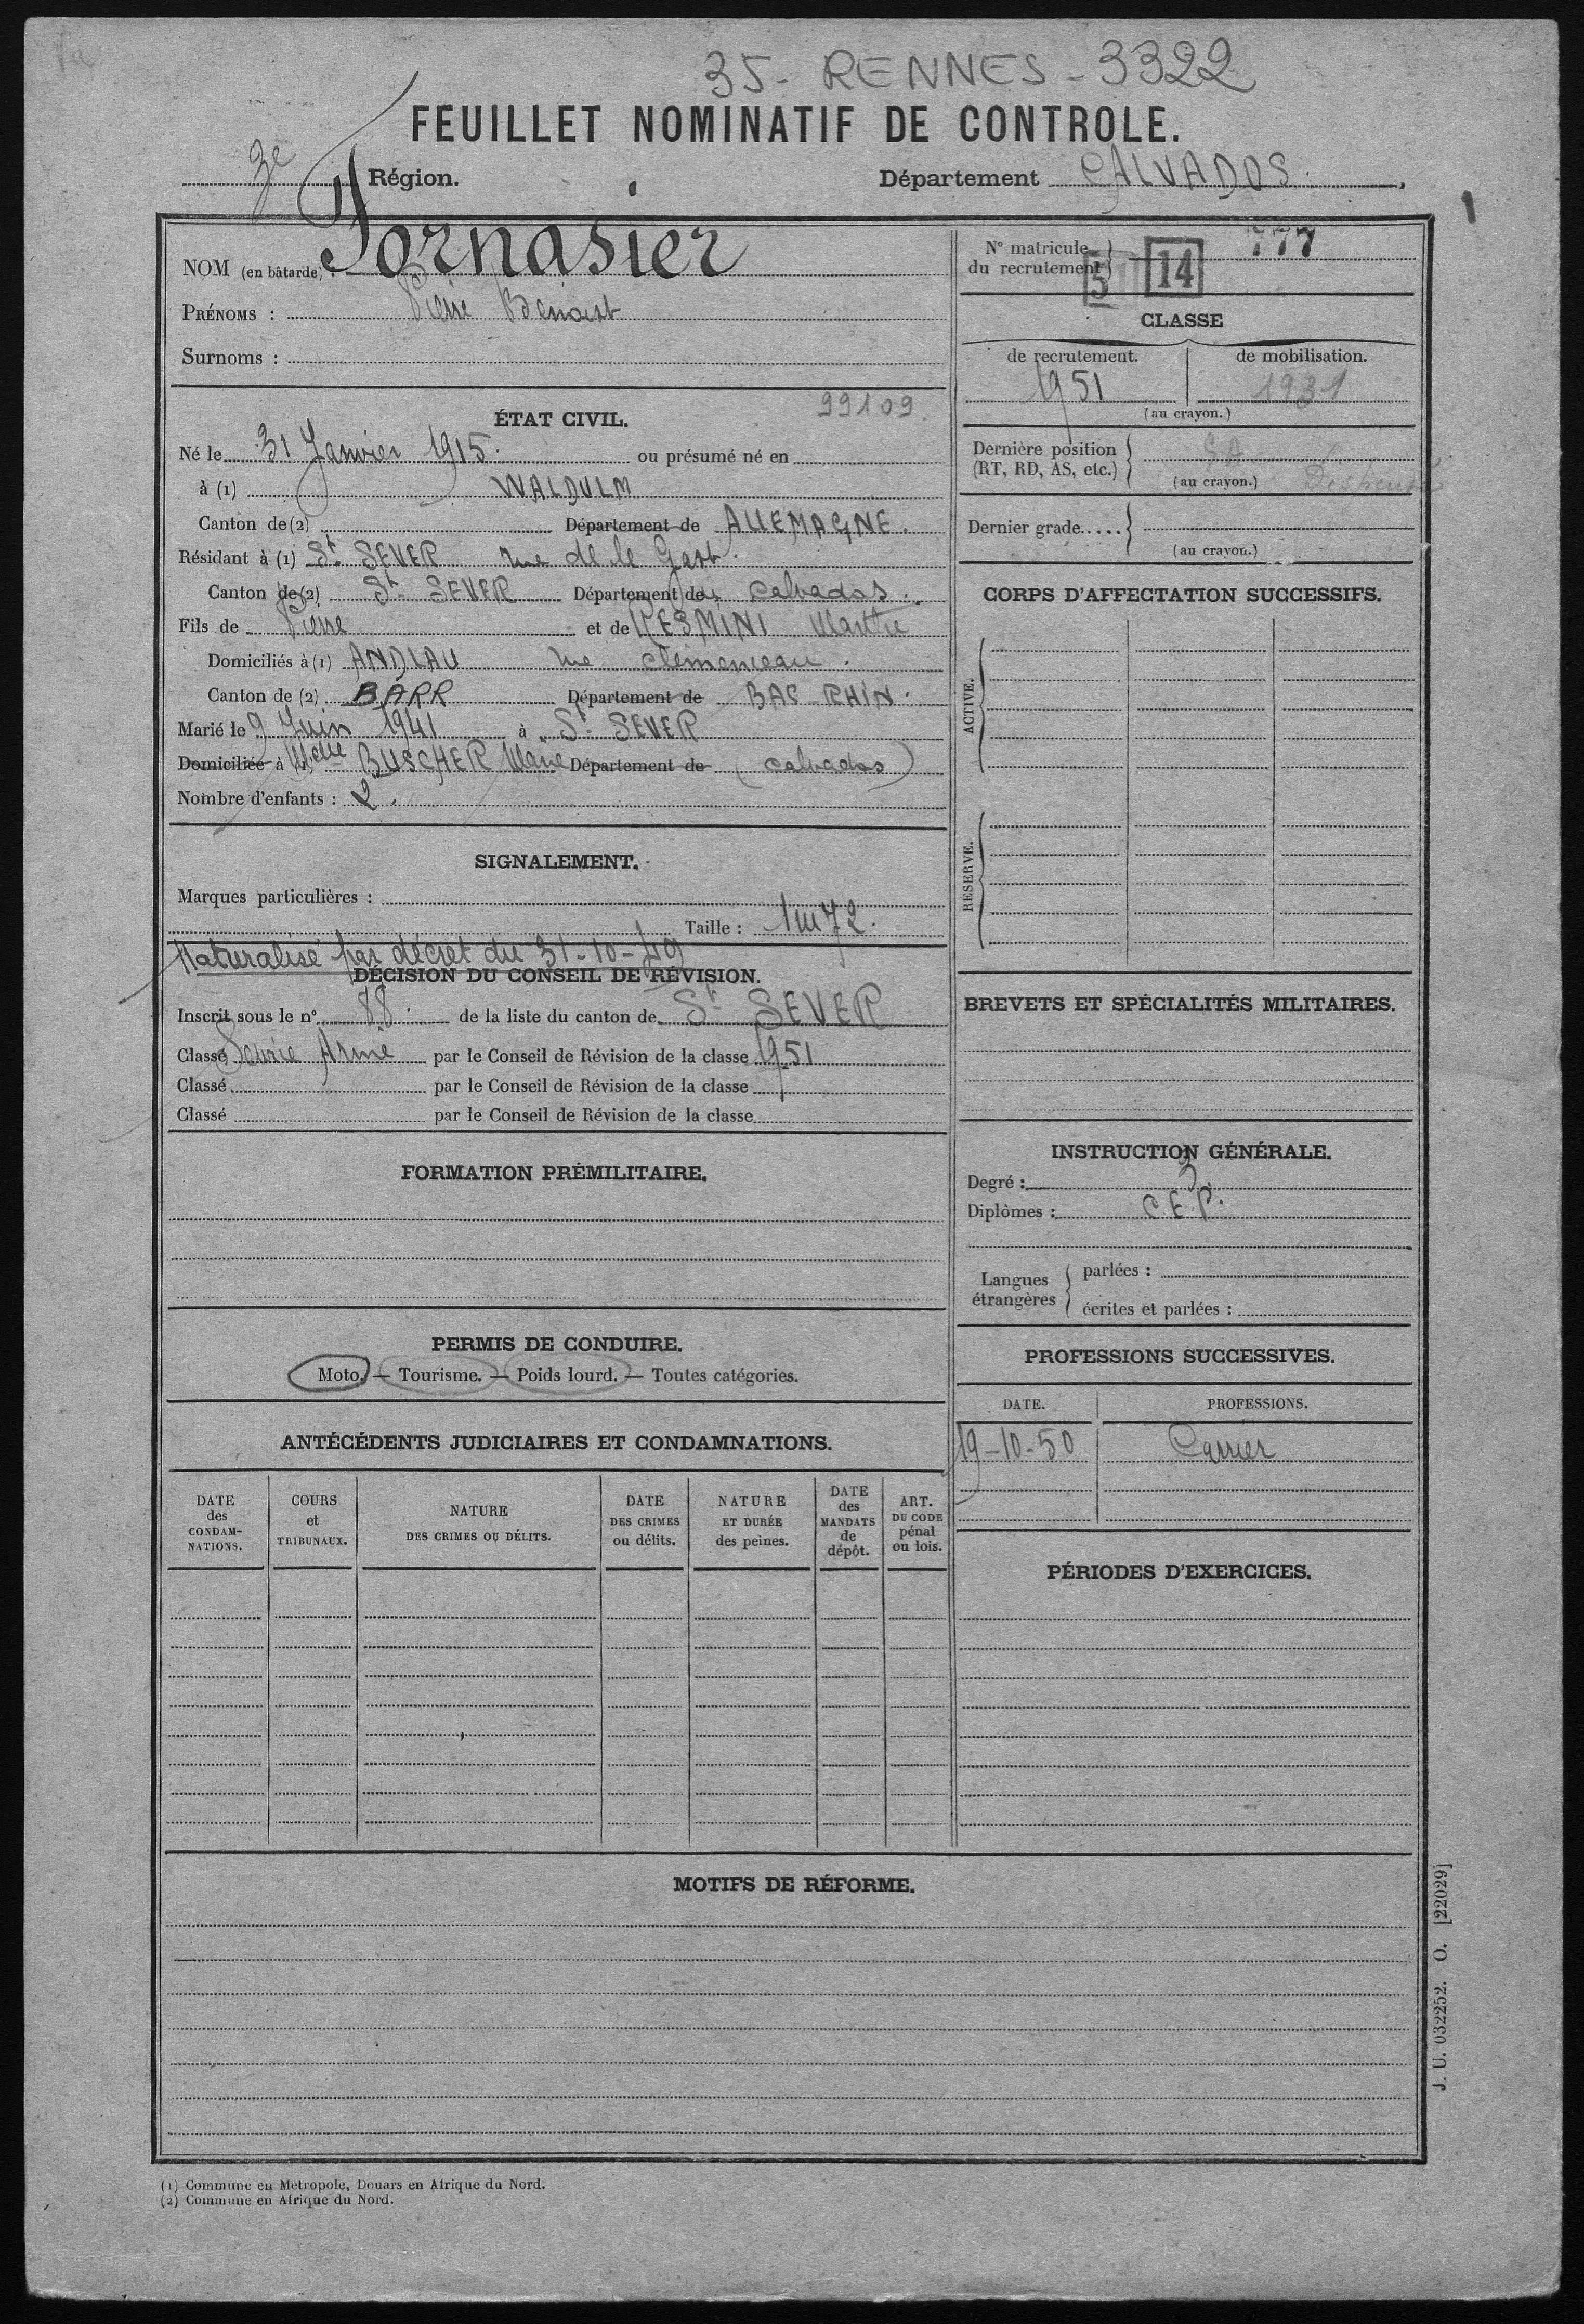 35 - RENNES - 3322
FEUILLET NOMINATIF DE CONTROLE.
3e Région.
Département CALVADOS.
NOM (en bâtarde) : Fornasier
PRÉNOMS : Pierre Benoist
Surnoms :
ÉTAT CIVIL.
99109
Né le 31 Janvier 1915. ou présumé né en
à (1) WALDULM
Canton de (2) Département de ALLEMAGNE.
Résidant à (1) St. SEVER rue de le Gast.
Canton de (2) St SEVER Département de Calvados.
Fils de Pierre et de Marthe
Domiciliés à (1) ANDLAU rue clémenceau.
Canton de (2) BARR Département de BAS-RHIN.
Marié le 9 Juin 1941 à St SEVER
Domiciliée à (1) Melle BUSCHER Marie Département de (calvados)
Nombre d'enfants : 2.
SIGNALEMENT.
Marques particulières :
Taille : 1m72.
Naturalisé par décret du 31-10-49
DÉCISION DU CONSEIL DE RÉVISION.
Inscrit sous le n° 88. de la liste du canton de St SEVER
Classé Service Armé par le Conseil de Révision de la classe 1951
Classé par le Conseil de Révision de la classe
Classé par le Conseil de Révision de la classe
FORMATION PRÉMILITAIRE.
PERMIS DE CONDUIRE.
Moto. — Tourisme. — Poids lourd. — Toutes catégories.
ANTÉCÉDENTS JUDICIAIRES ET CONDAMNATIONS.
DATE des CONDAM-NATIONS.
COURS et TRIBUNAUX.
NATURE DES CRIMES OU DÉLITS.
DATE DES CRIMES ou délits.
NATURE ET DURÉE des peines.
DATE des MANDATS de dépôt.
ART. DU CODE pénal ou lois.
N° matricule du recrutement 777
5 14
CLASSE
de recrutement. de mobilisation.
1951 1931
(au crayon.)
Dernière position (RT, RD, AS, etc.) SA
(au crayon.) Dispensé
Dernier grade.....
(au crayon.)
CORPS D'AFFECTATION SUCCESSIFS.
ACTIVE.
RÉSERVE.
BREVETS ET SPÉCIALITÉS MILITAIRES.
INSTRUCTION GÉNÉRALE.
Degré : 3.
Diplômes : C.E.P.
Langues étrangères
parlées :
écrites et parlées :
PROFESSIONS SUCCESSIVES.
DATE. PROFESSIONS.
19-10-50 Carrier
PÉRIODES D'EXERCICES.
MOTIFS DE RÉFORME.
J. U. 032252. O. [22029]
(1) Commune en Métropole, Douars en Afrique du Nord.
(2) Commune en Afrique du Nord.